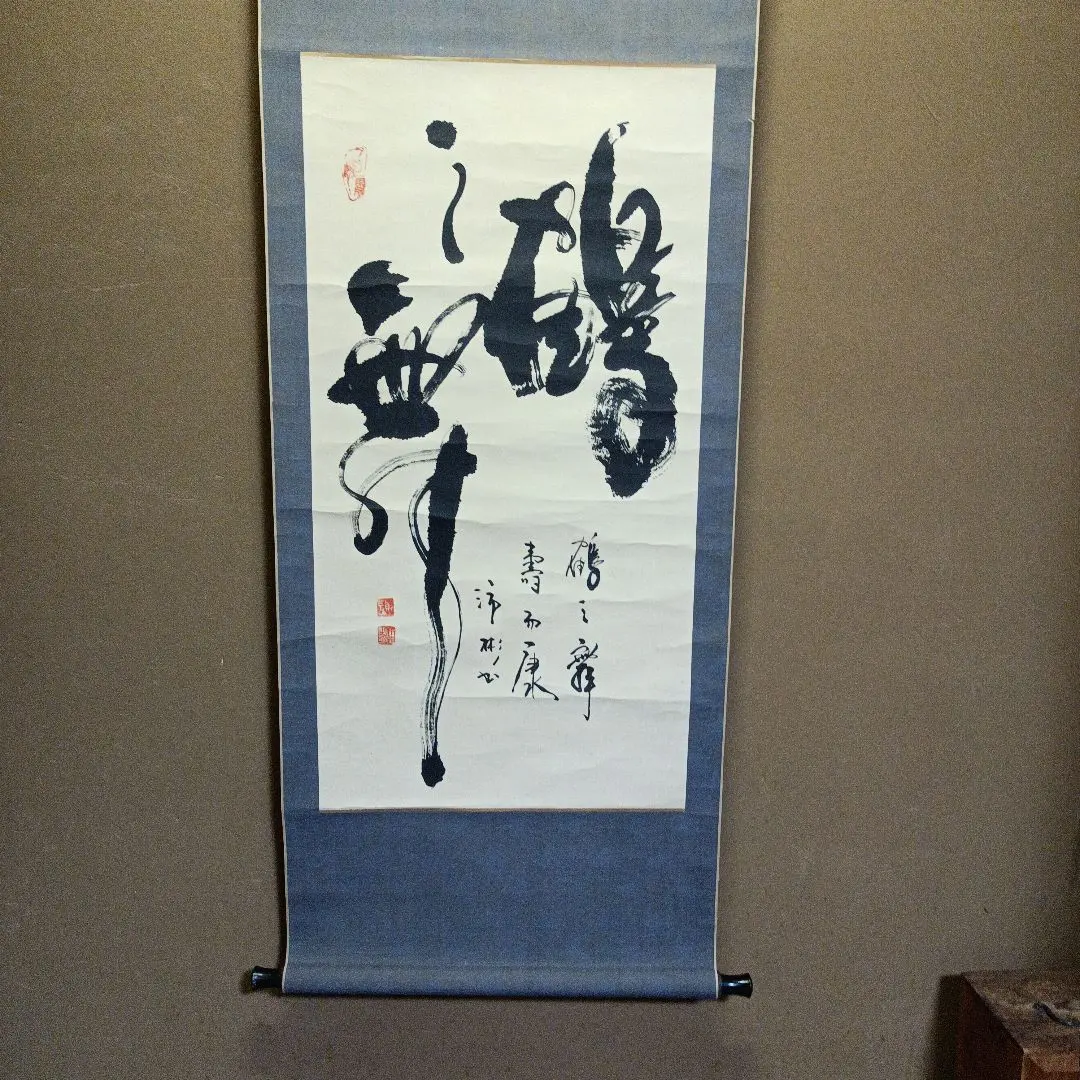 鶴
之舞
鶴之舞
壽而康